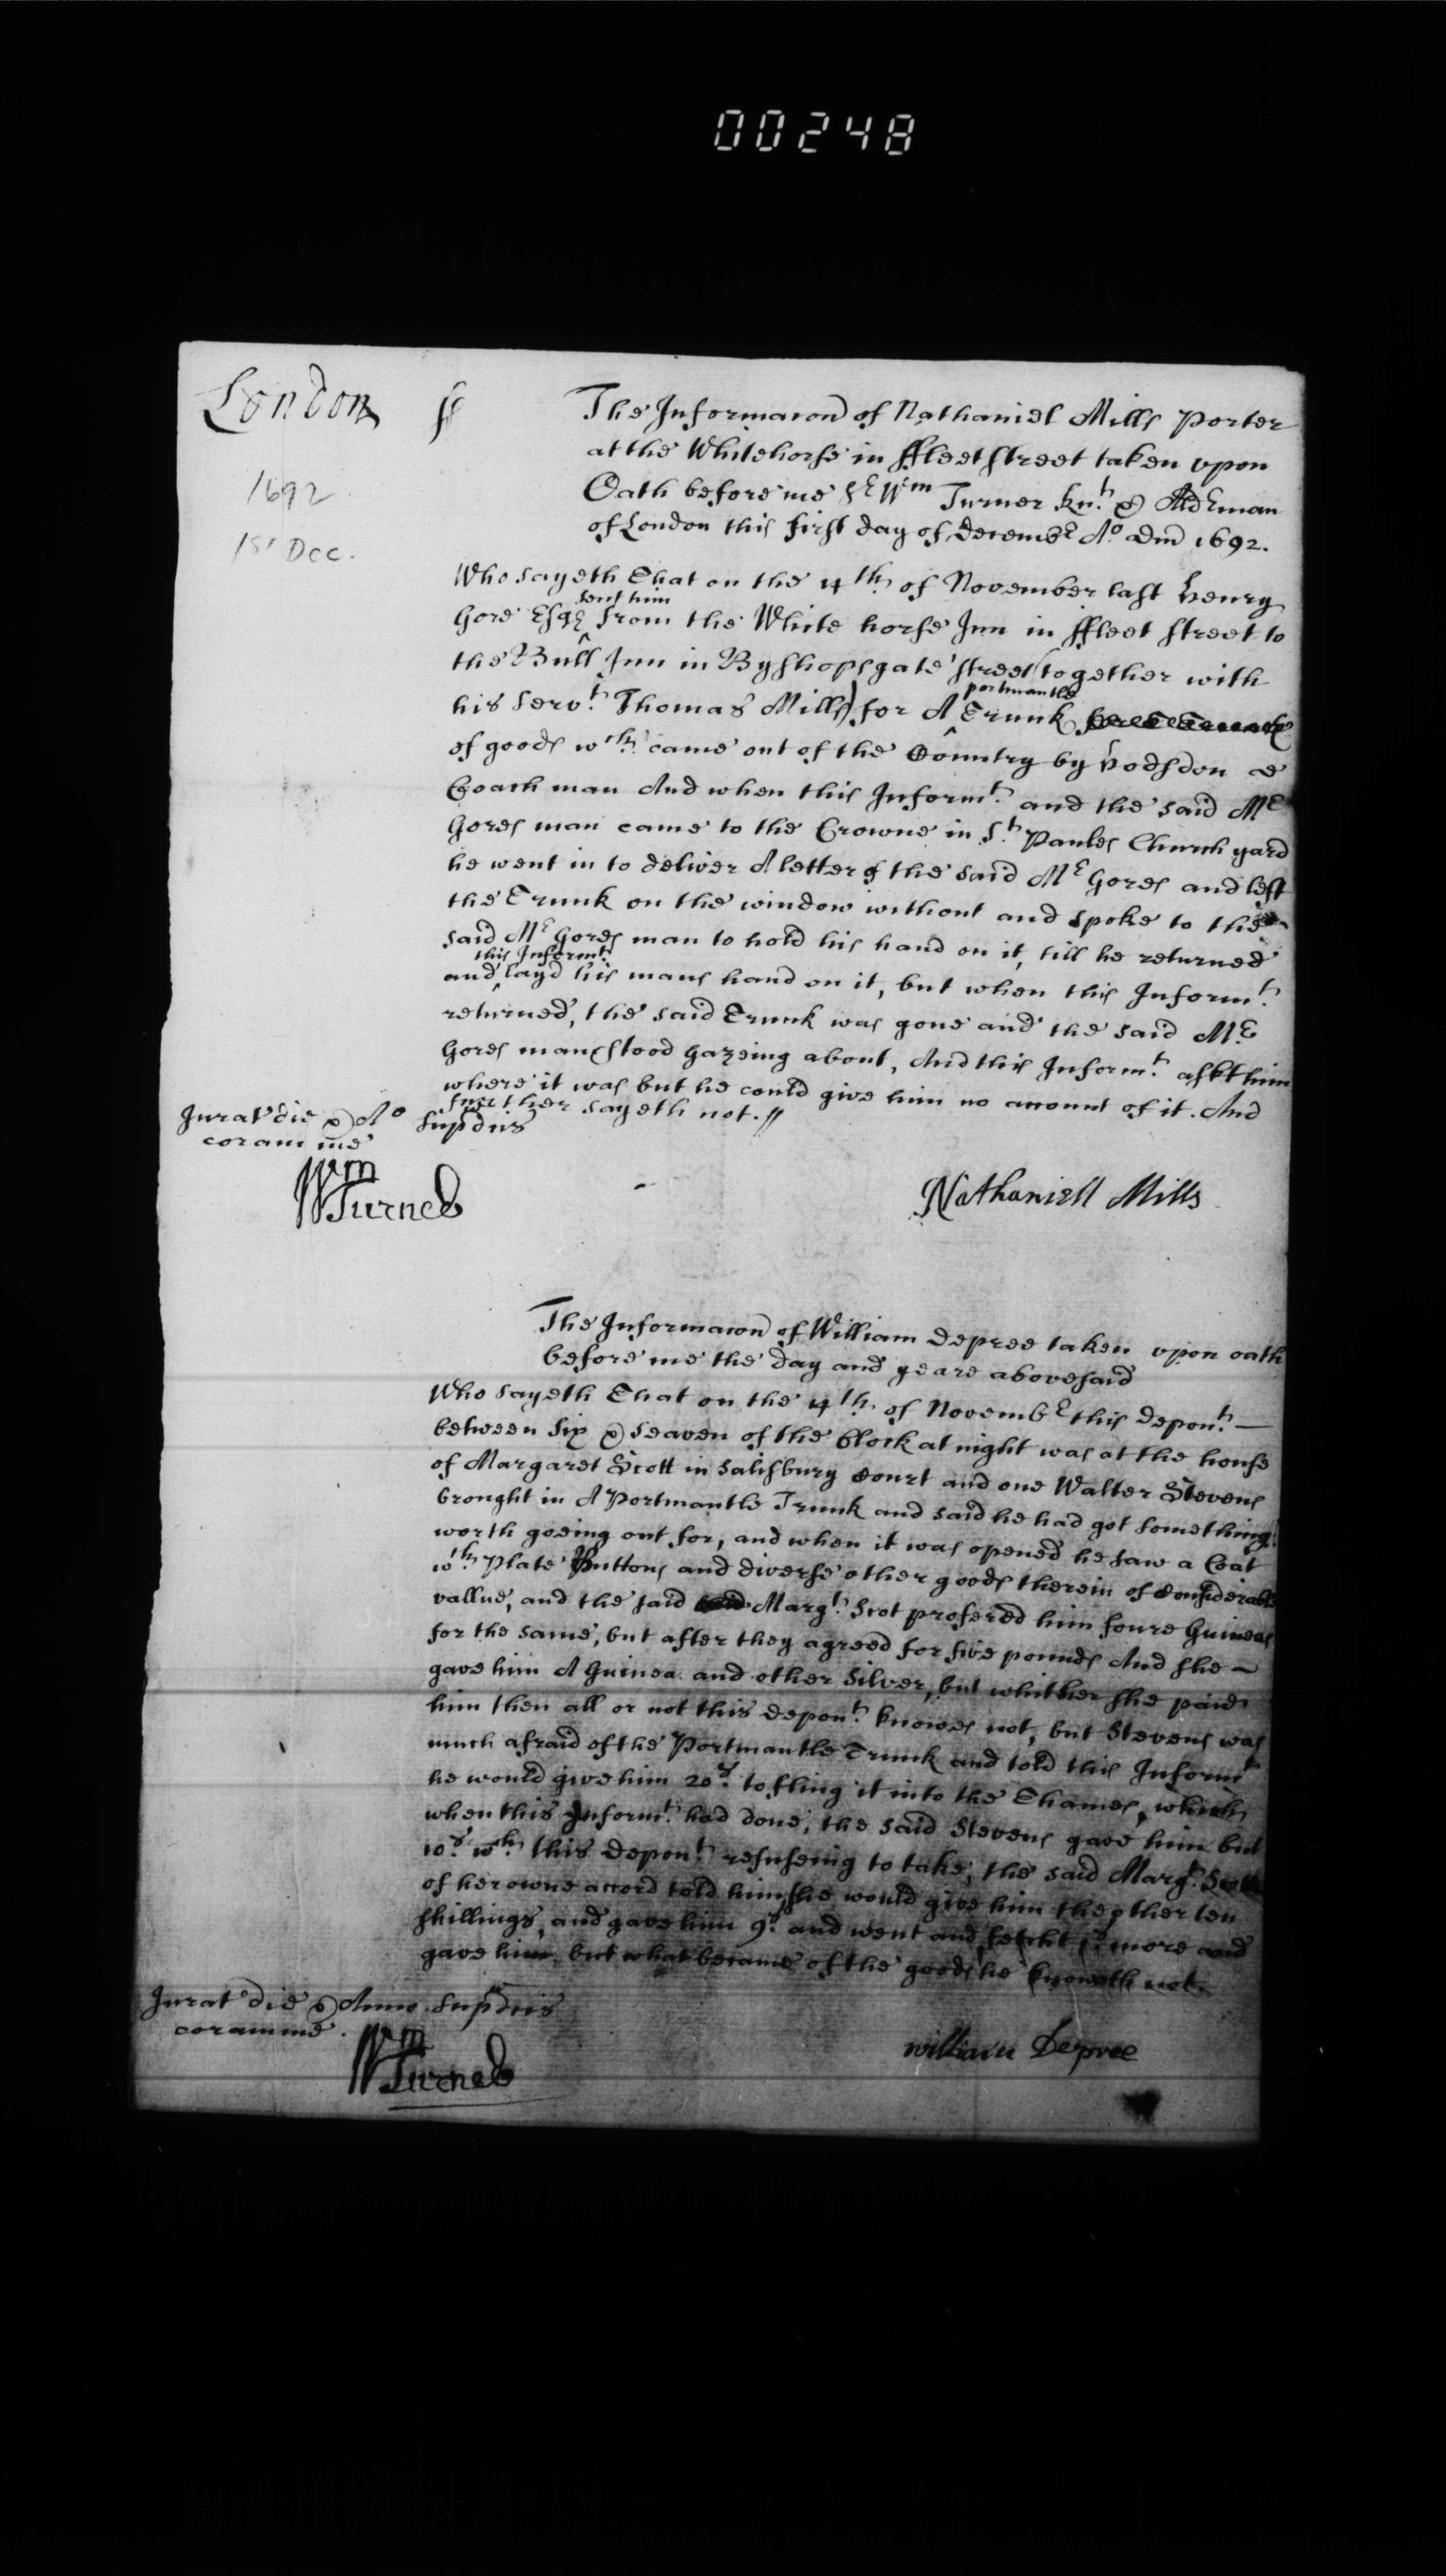 00248
London ss
The Informacon of Nathaniel Mills Porter
at the Whitehorse in ffleet street taken vpon
Oath before me Sr Wm Turner Knt & Aldrman
of London this first day of Decembr Ao Dni 1692.
1692
1st Dec.
Who sayeth That on the 4th of November last Henry
Gore Esqr ^sent him from the White horse Inn in ffleet street to
the Bull Inn in Byshopsgate street (together with
his Servt Thomas Mills) for A ^portmantle Trunk
of goods wch came out of the Country by Hodsdon
Coach man And when this Informt and the said Mr
Gores man came to the Crowne in St Paules Church yard
he went in to deliver A letter of the said Mr Gores and left
the Trunk on the window without and spoke to the
said Mr Gores man to hold his hand on it, till he returned
and ^this Informt layd his mans hand on it, but when this Informt
returned, the said Trunk was gone and the said Mr
Gores man stood gazeing about, And this Informt askt him
where it was but he could give him no account of it. And
further sayeth not. //
Jurat' die & Ao supdcis
coram me
Wm Turner
Nathaniell Mills
The Informacon of William Depree taken vpon oath
before me the day and yeare abovesaid
Who sayeth That on the 4th of Novembr this Depont —
between Six & Seaven of the Clock at night was at the house
of Margaret Scott in Salisbury Court and one Walter Stevens
brought in A Portmantle Trunk and said he had got something
worth goeing out for, and when it was opened he saw a Coat
wth Plate Buttons and diverse other goods therein of Considerable
vallue, and the said Margt Scot profered him foure Guineas
for the same, but after they agreed for five pounds And she —
gave him A Guinea and other Silver, but whither she paid
him then all or not this Depont knowes not, but Stevens was
much afraid of the Portmantle Trunk and told this Informt
he would give him 20s to fling it into the Thames, which
when this Informt had done, the said Stevens gave him but
10s wch this Depont refuseing to take, the said Margt Scott
of her owne accord told him she would give him the other ten
shillings, and gave him 9s and went and fetcht 1s more and
gave him, but what became of the goods he knoweth not.
Jurat' die & Anno supdcis
coram me.
Wm Turner
William Depree